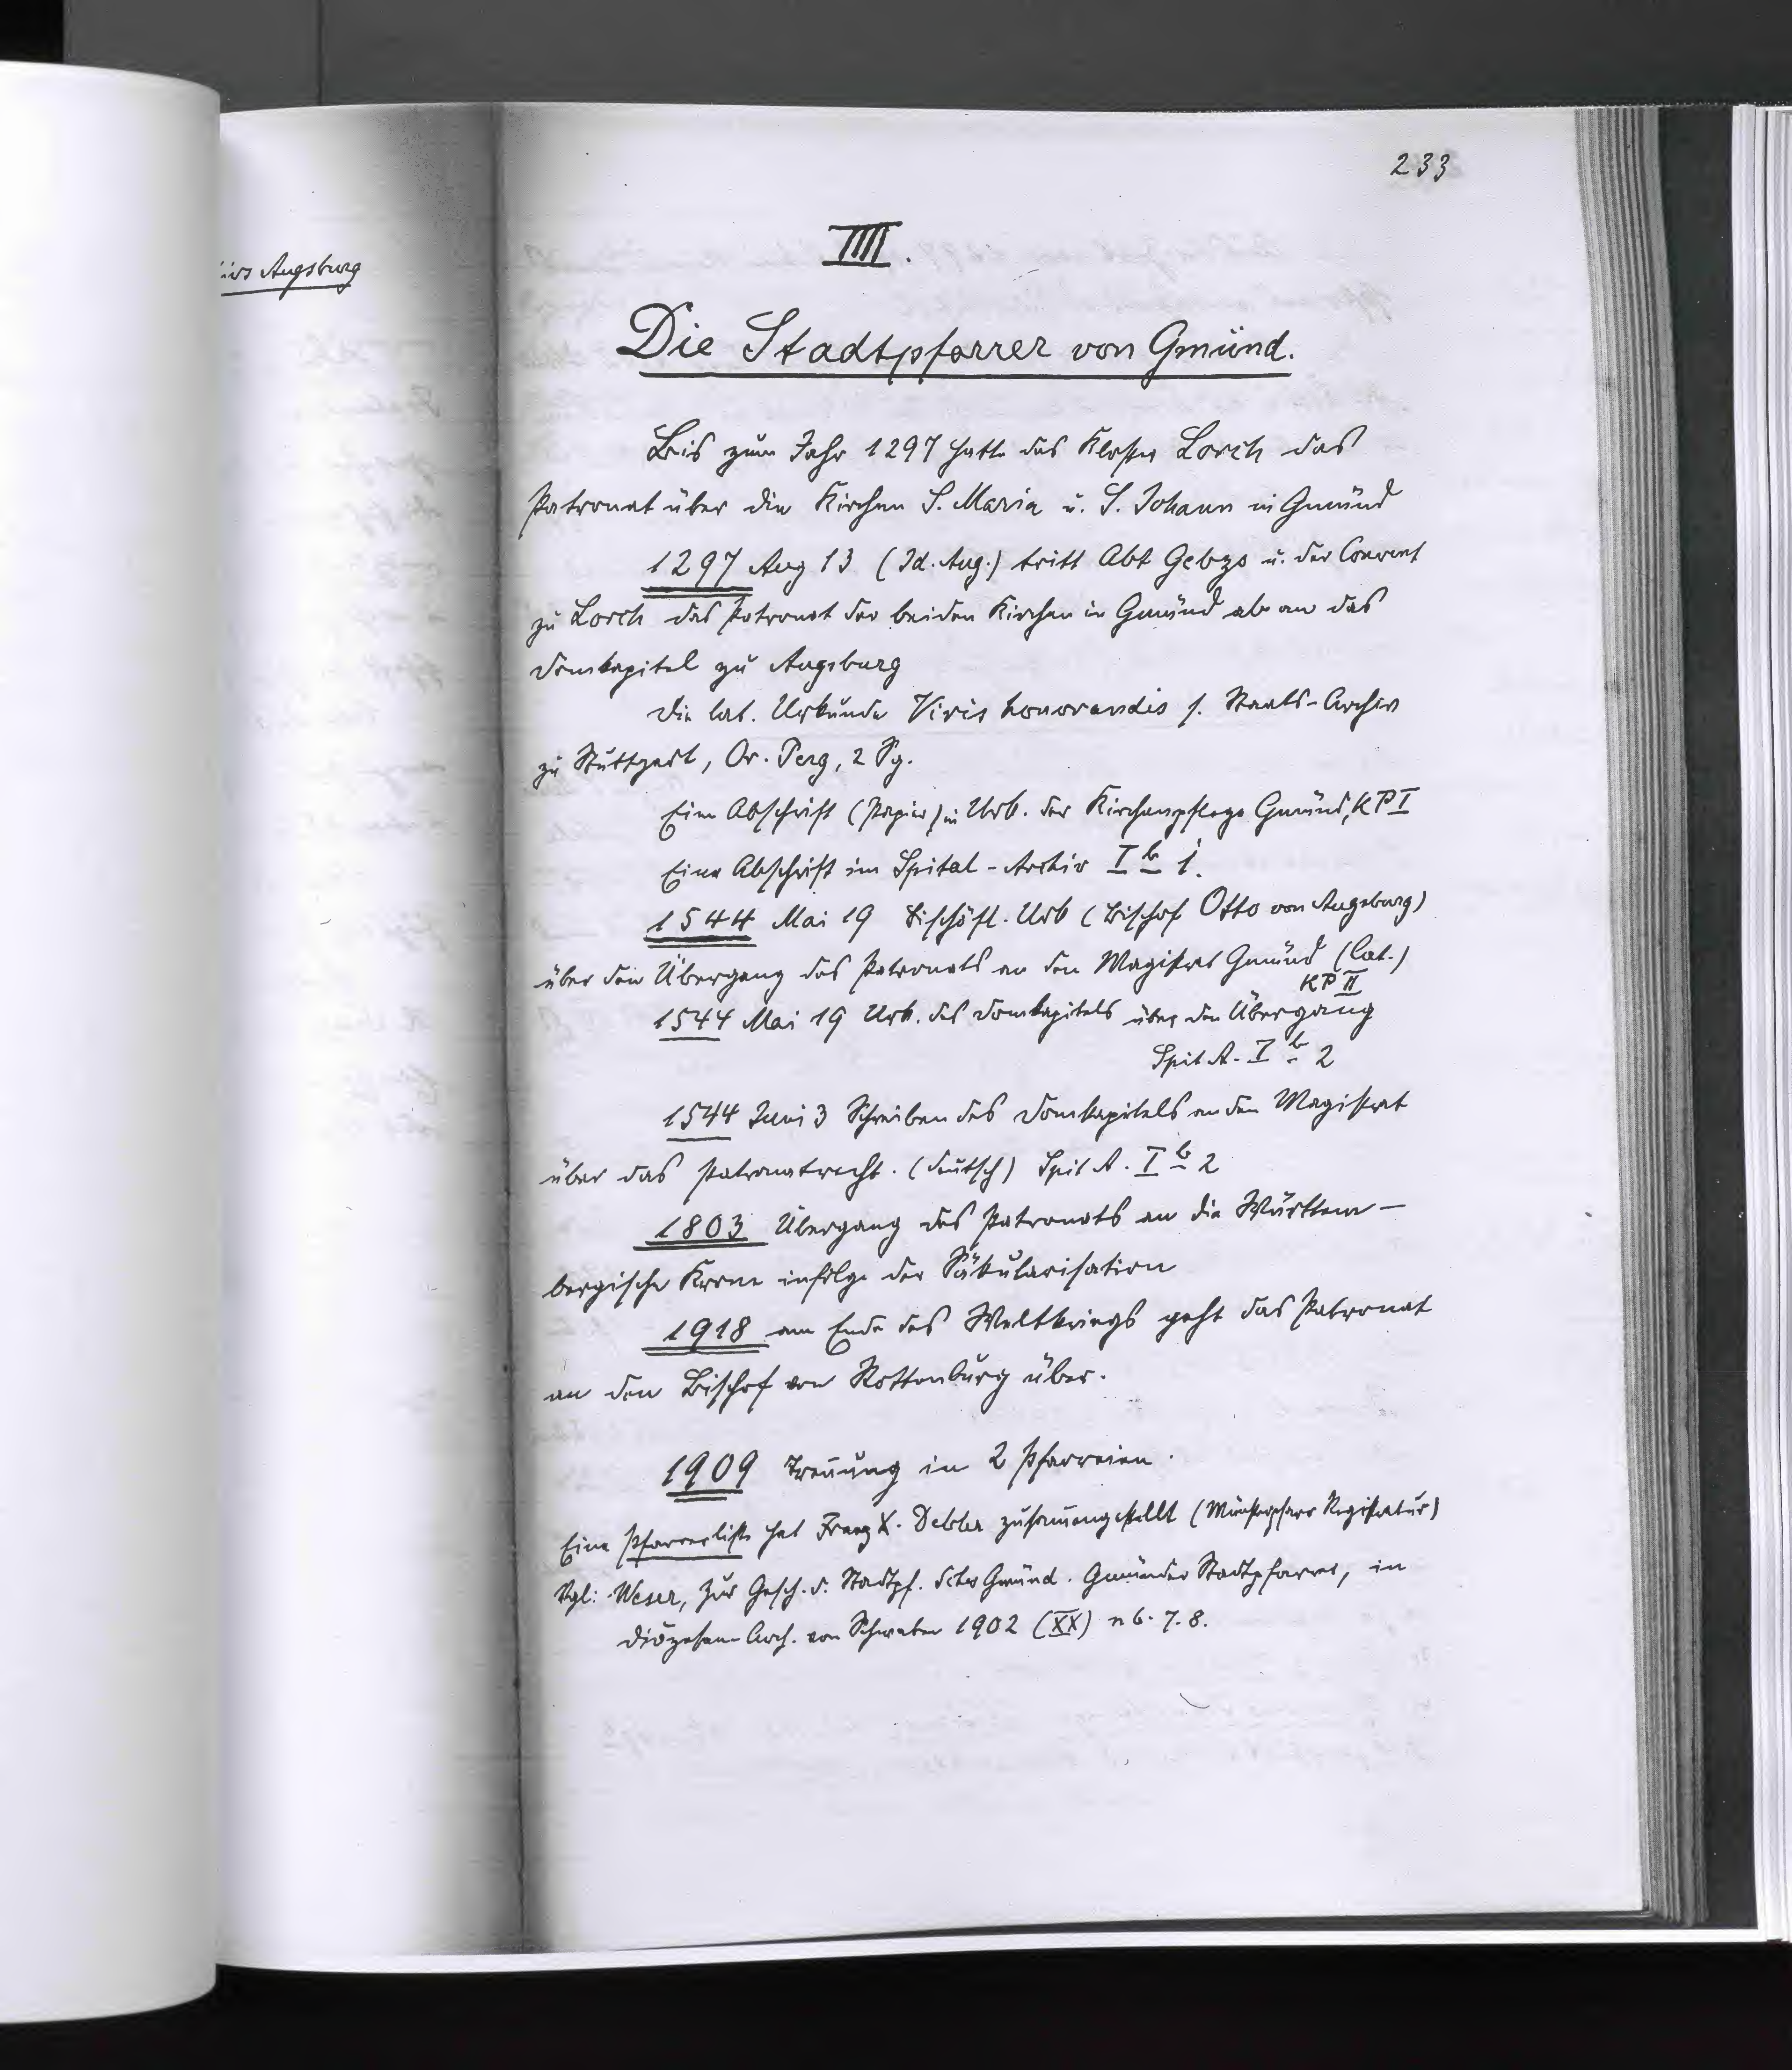 irs Augsburg
233
IIII.
Die Stadtpfarrer von Gmünd.
Bis zum Jahr 1297 hatte das Kloster Lorch das
Patronat über die Kirchen S. Maria u. S. Johann in Gmünd
1297 Aug 13 (Id. Aug.) tritt Abt Gebzo u. der Convent
zu Lorch das Patronat der beiden Kirchen in Gmünd ab an das
Domkapitel zu Augsburg
Die lat. Urkunde Viris honorandis s. Staats-Archiv
zu Stuttgart, Or. Perg, 2 Sg.
Eine Abschrift (Papier) in Urk. der Kirchenpflege Gmünd, KP I
Eine Abschrift im Spital-Archiv I b 1.
1544 Mai 19 Bischöfl. Urk (Bischof Otto von Augsburg)
über den Übergang des Patronats an den Magistrat Gmünd (lat.)
KP II
1544 Mai 19 Urk. des Domkapitels über den Übergang
Spit A. I b 2
1544 Juni 3 Schreiben des Domkapitels an den Magistrat
über das Patronatrecht. (deutsch) Spit A. I b 2
1803 Übergang des Patronats an die Württem-
bergische Krone infolge der Säkularisation
1918 am Ende des Weltkriegs geht das Patronat
an den Bischof von Rottenburg über.
1909 Trennung in 2 Pfarreien.
Eine Pfarrerliste hat Franz X. Debler zusammengestellt (Münsterpfarr Registratur)
Vgl: Weser, Zur Gesch. d. Stadtpf. Gmünd. Gmünder Stadtpfarrer, in
Diözesan-Arch. von Schwaben 1902 (XX) n 6. 7. 8.